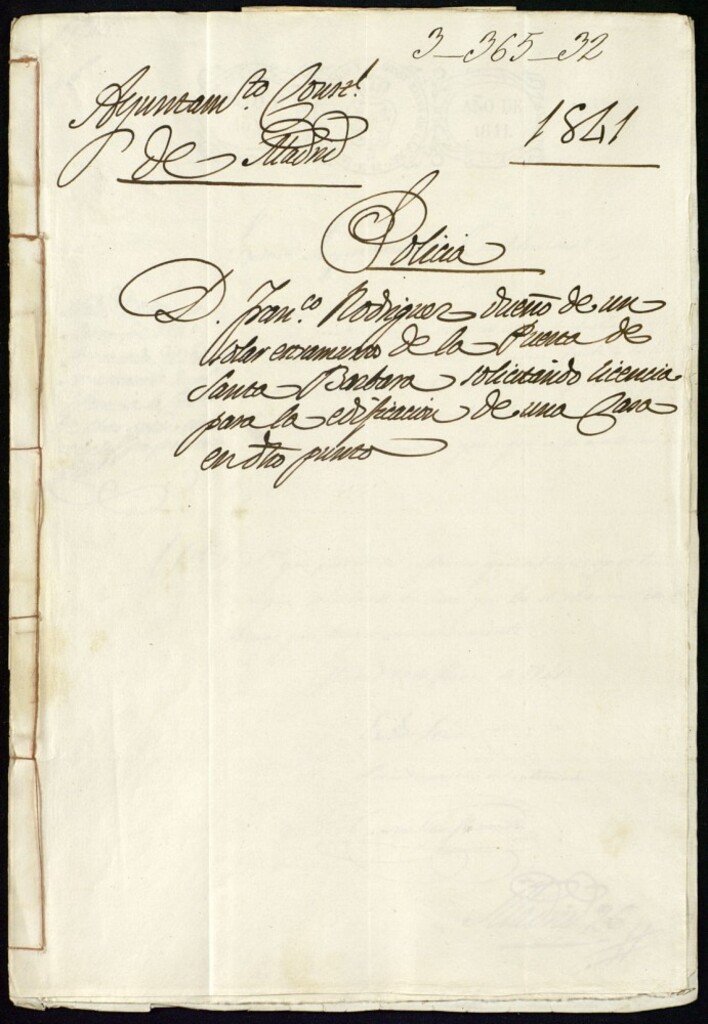 3-365-32
Ayuntam.to Const.l
de Madrid
1841
Policia
D. Fran.co Rodriguez dueño de un
solar extramuros de la Puerta de
Santa Barbara solicitando licencia
para la edificacion de una Casa
en dho punto